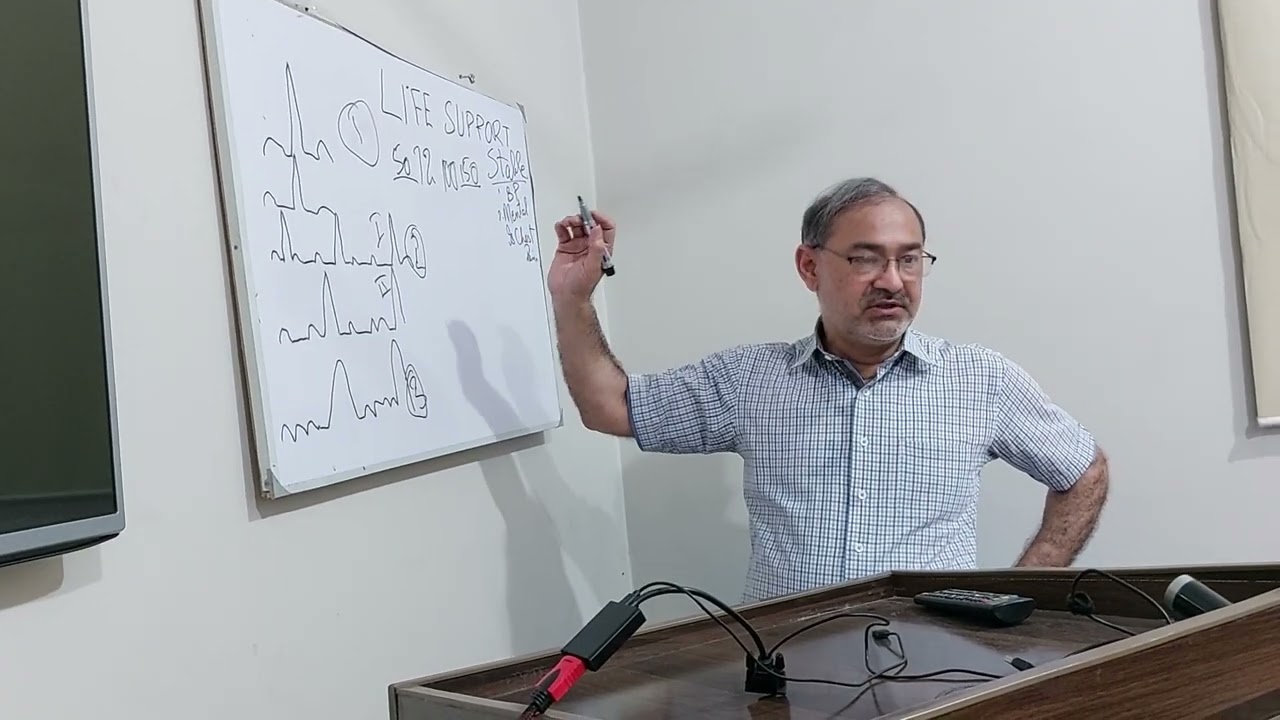 LIFE SUPPORT
1
50 72 100 150
Stable
BP
Mental
Chest
I
2
II
3